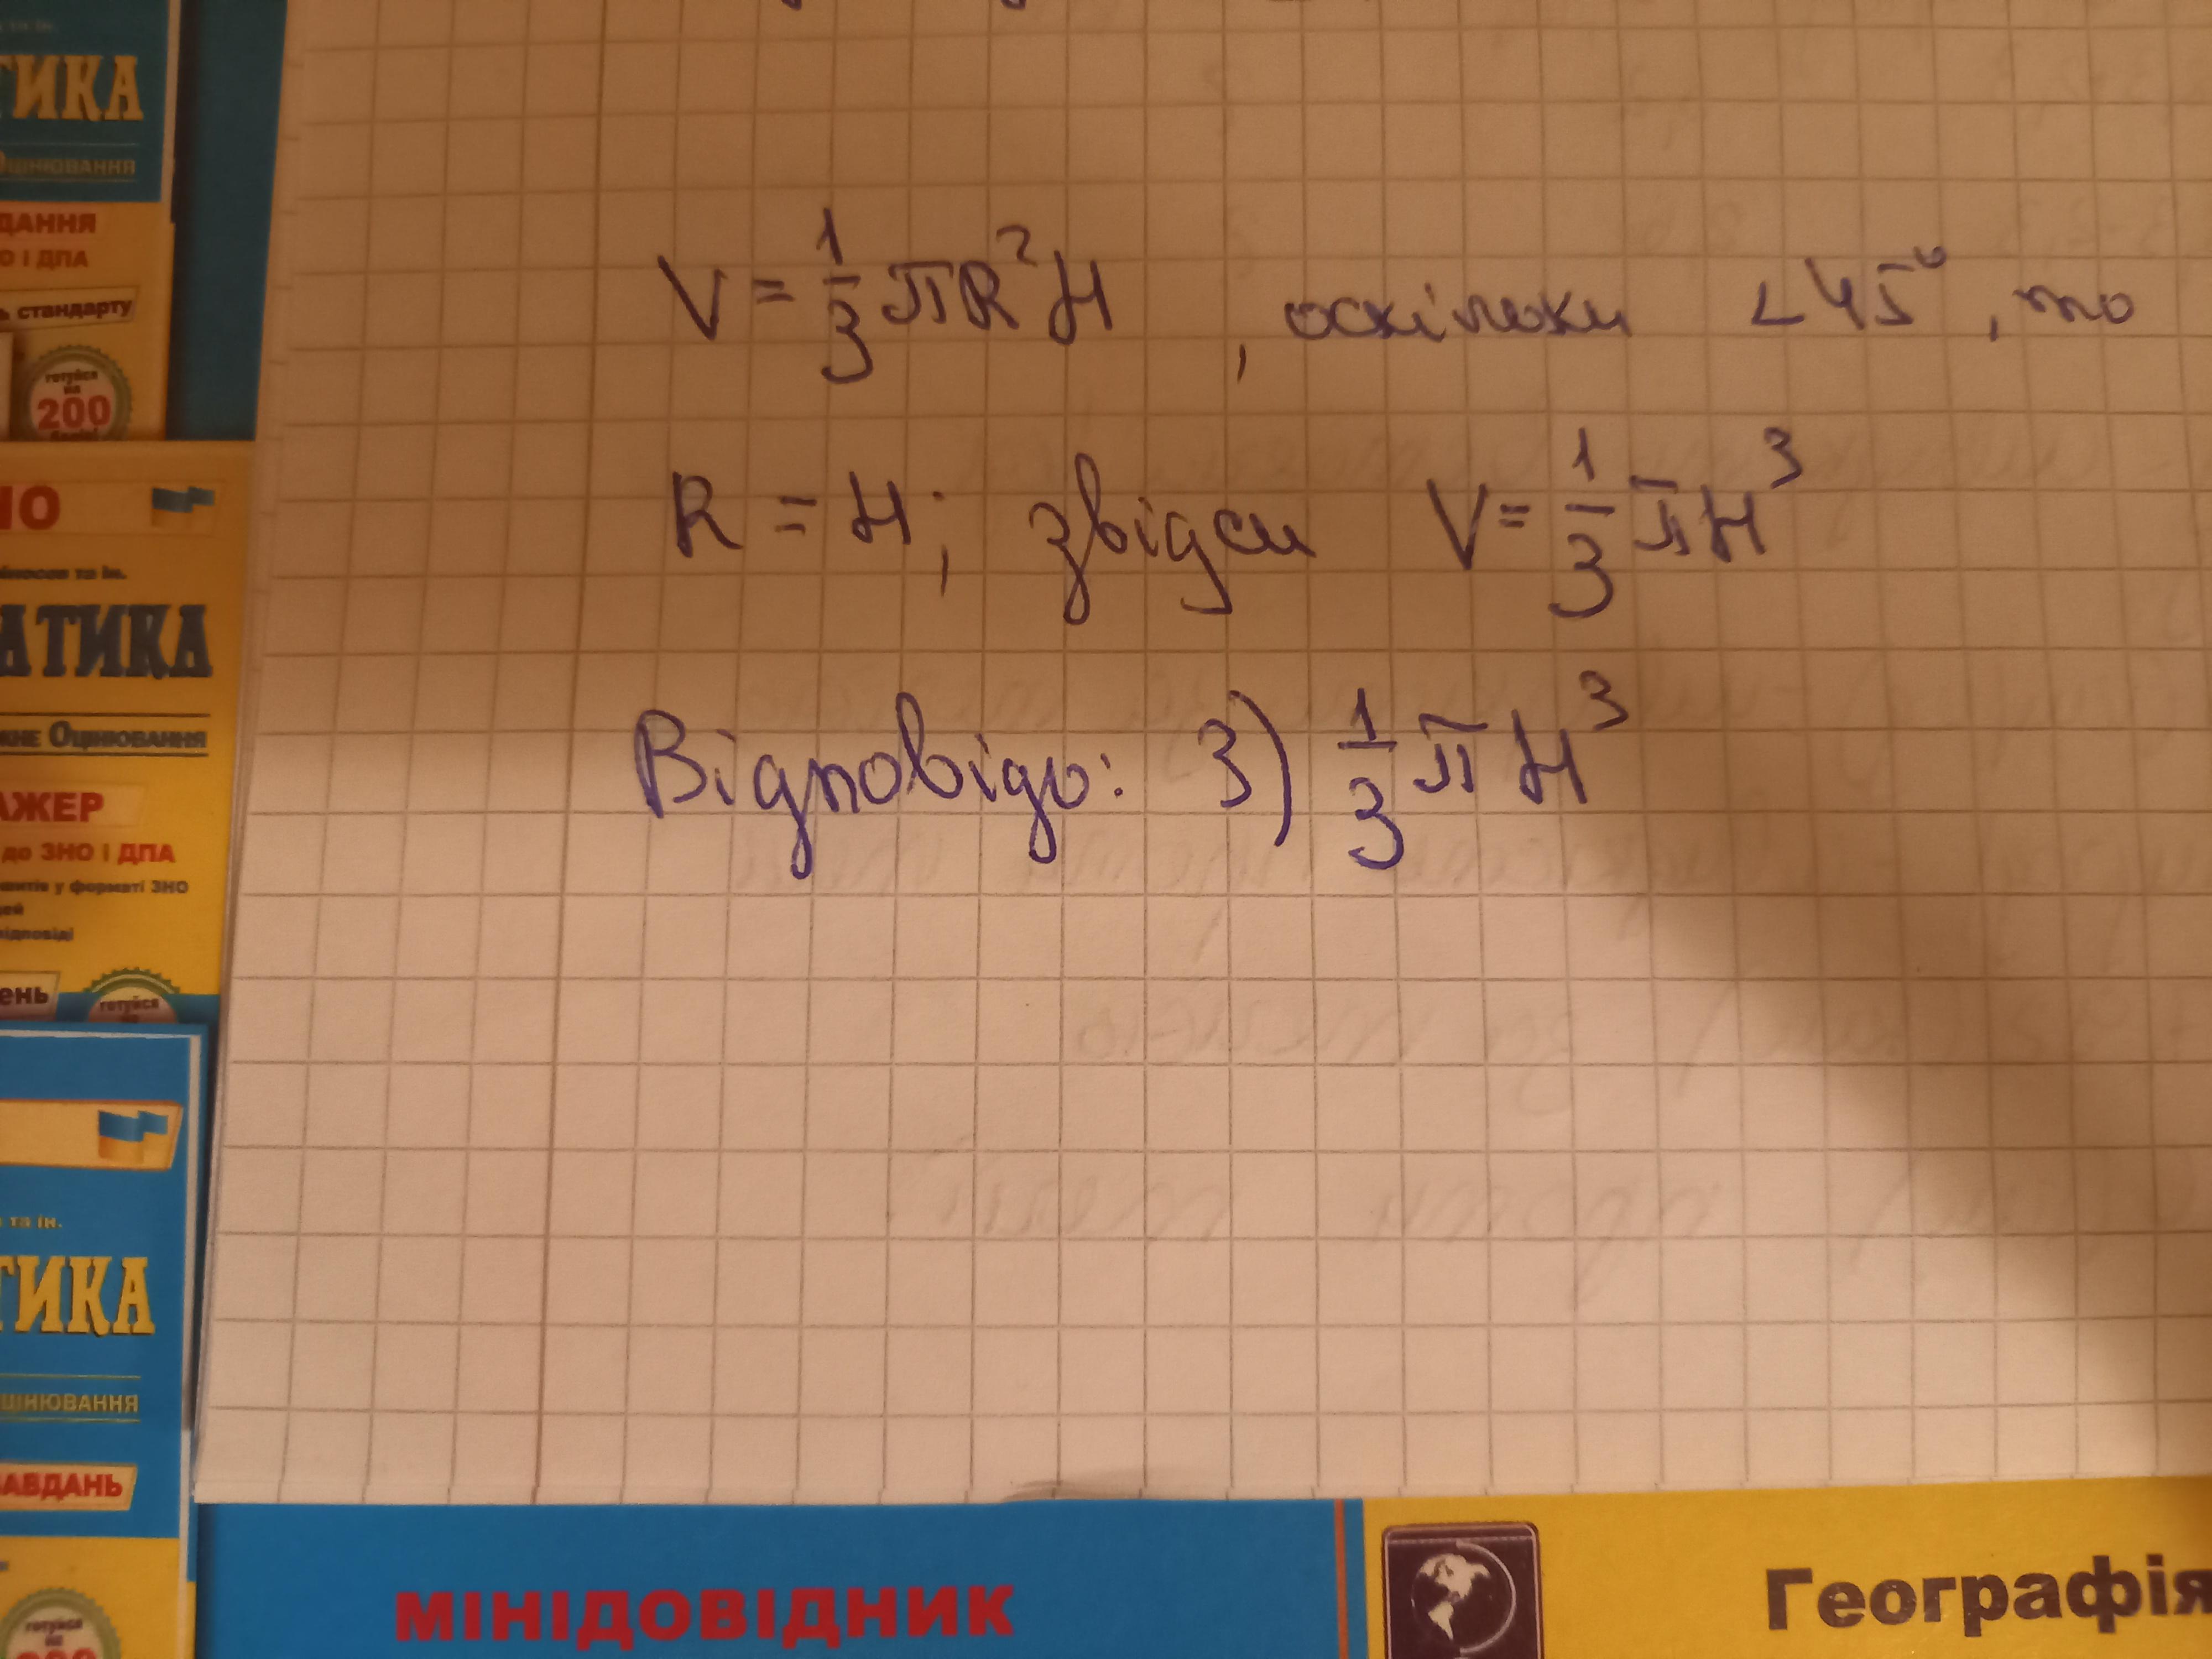 ТИКА
ОЦІНЮВАННЯ
ДАННЯ
О І ДПА
стандарту
готуйся
на
200
V = 1/3 πR²H , оскільки ∠45°, то
R = H; звідси V = 1/3 πH³
Відповідь: 3) 1/3 πH³
НО
та ін.
АТИКА
ОЦІНЮВАННЯ
АЖЕР
до ЗНО І ДПА
у форматі ЗНО
ень
готуйся
та ін.
ТИКА
ЦІНЮВАННЯ
АВДАНЬ
готуйся
на
МІНІДОВІДНИК
Географія